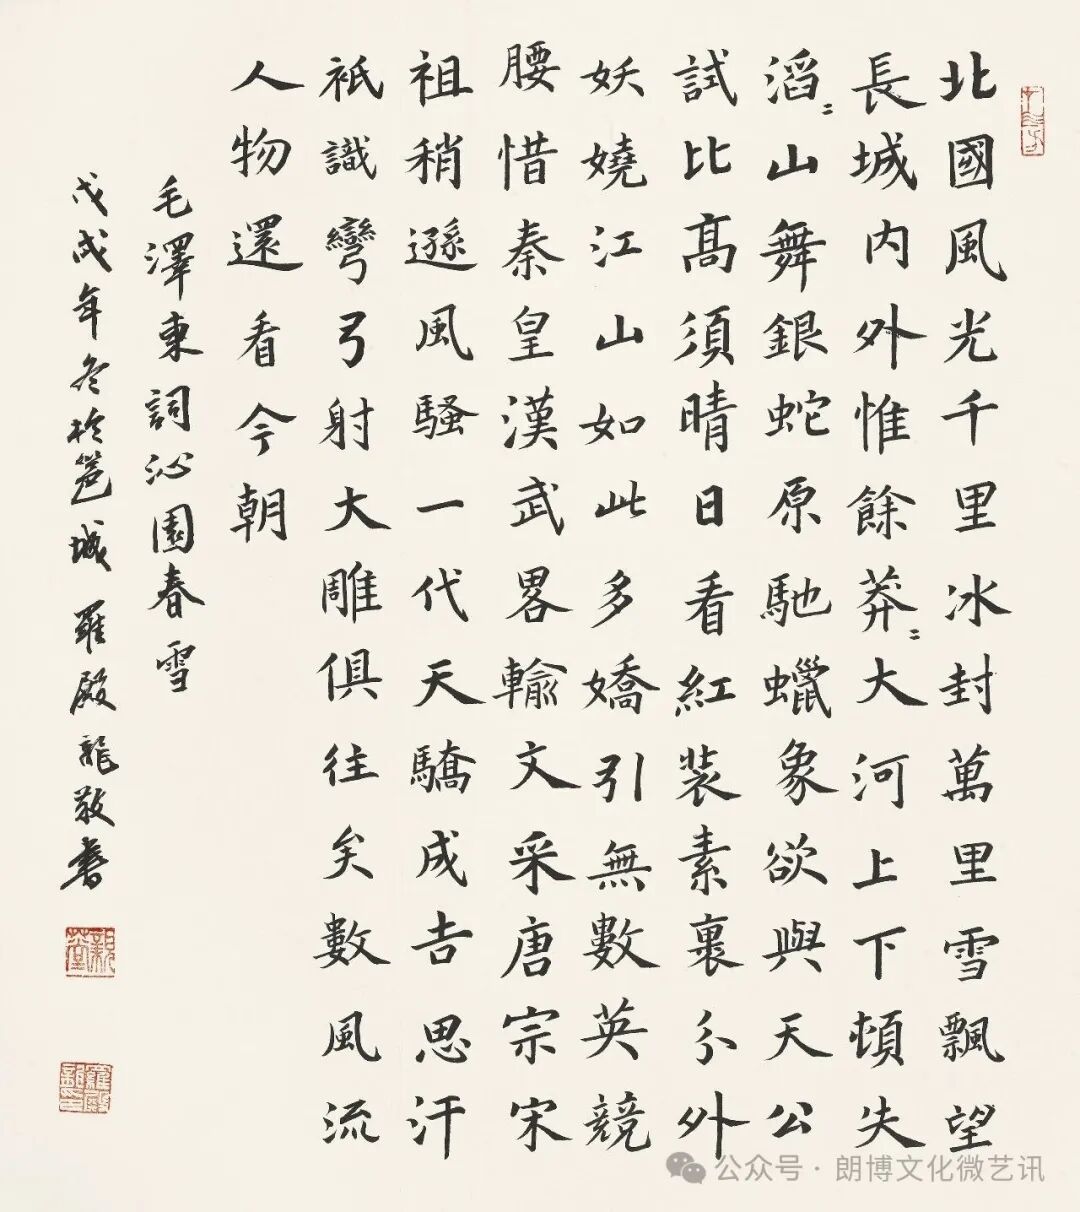 北國風光千里冰封萬里雪飄望
長城内外惟餘莽〻大河上下頓失
滔〻山舞銀蛇原馳蠟象欲與天公
試比髙須晴日看紅裝素裹分外
妖嬈江山如此多嬌引無數英競
腰惜秦皇漢武畧輸文采唐宗宋
祖稍遜風騷一代天驕成吉思汗
衹識彎弓射大雕俱往矣數風流
人物還看今朝
毛澤東詞沁園春雪
戊戌年冬於邕城 羅殿龍敬書
公众号·朗博文化微艺讯